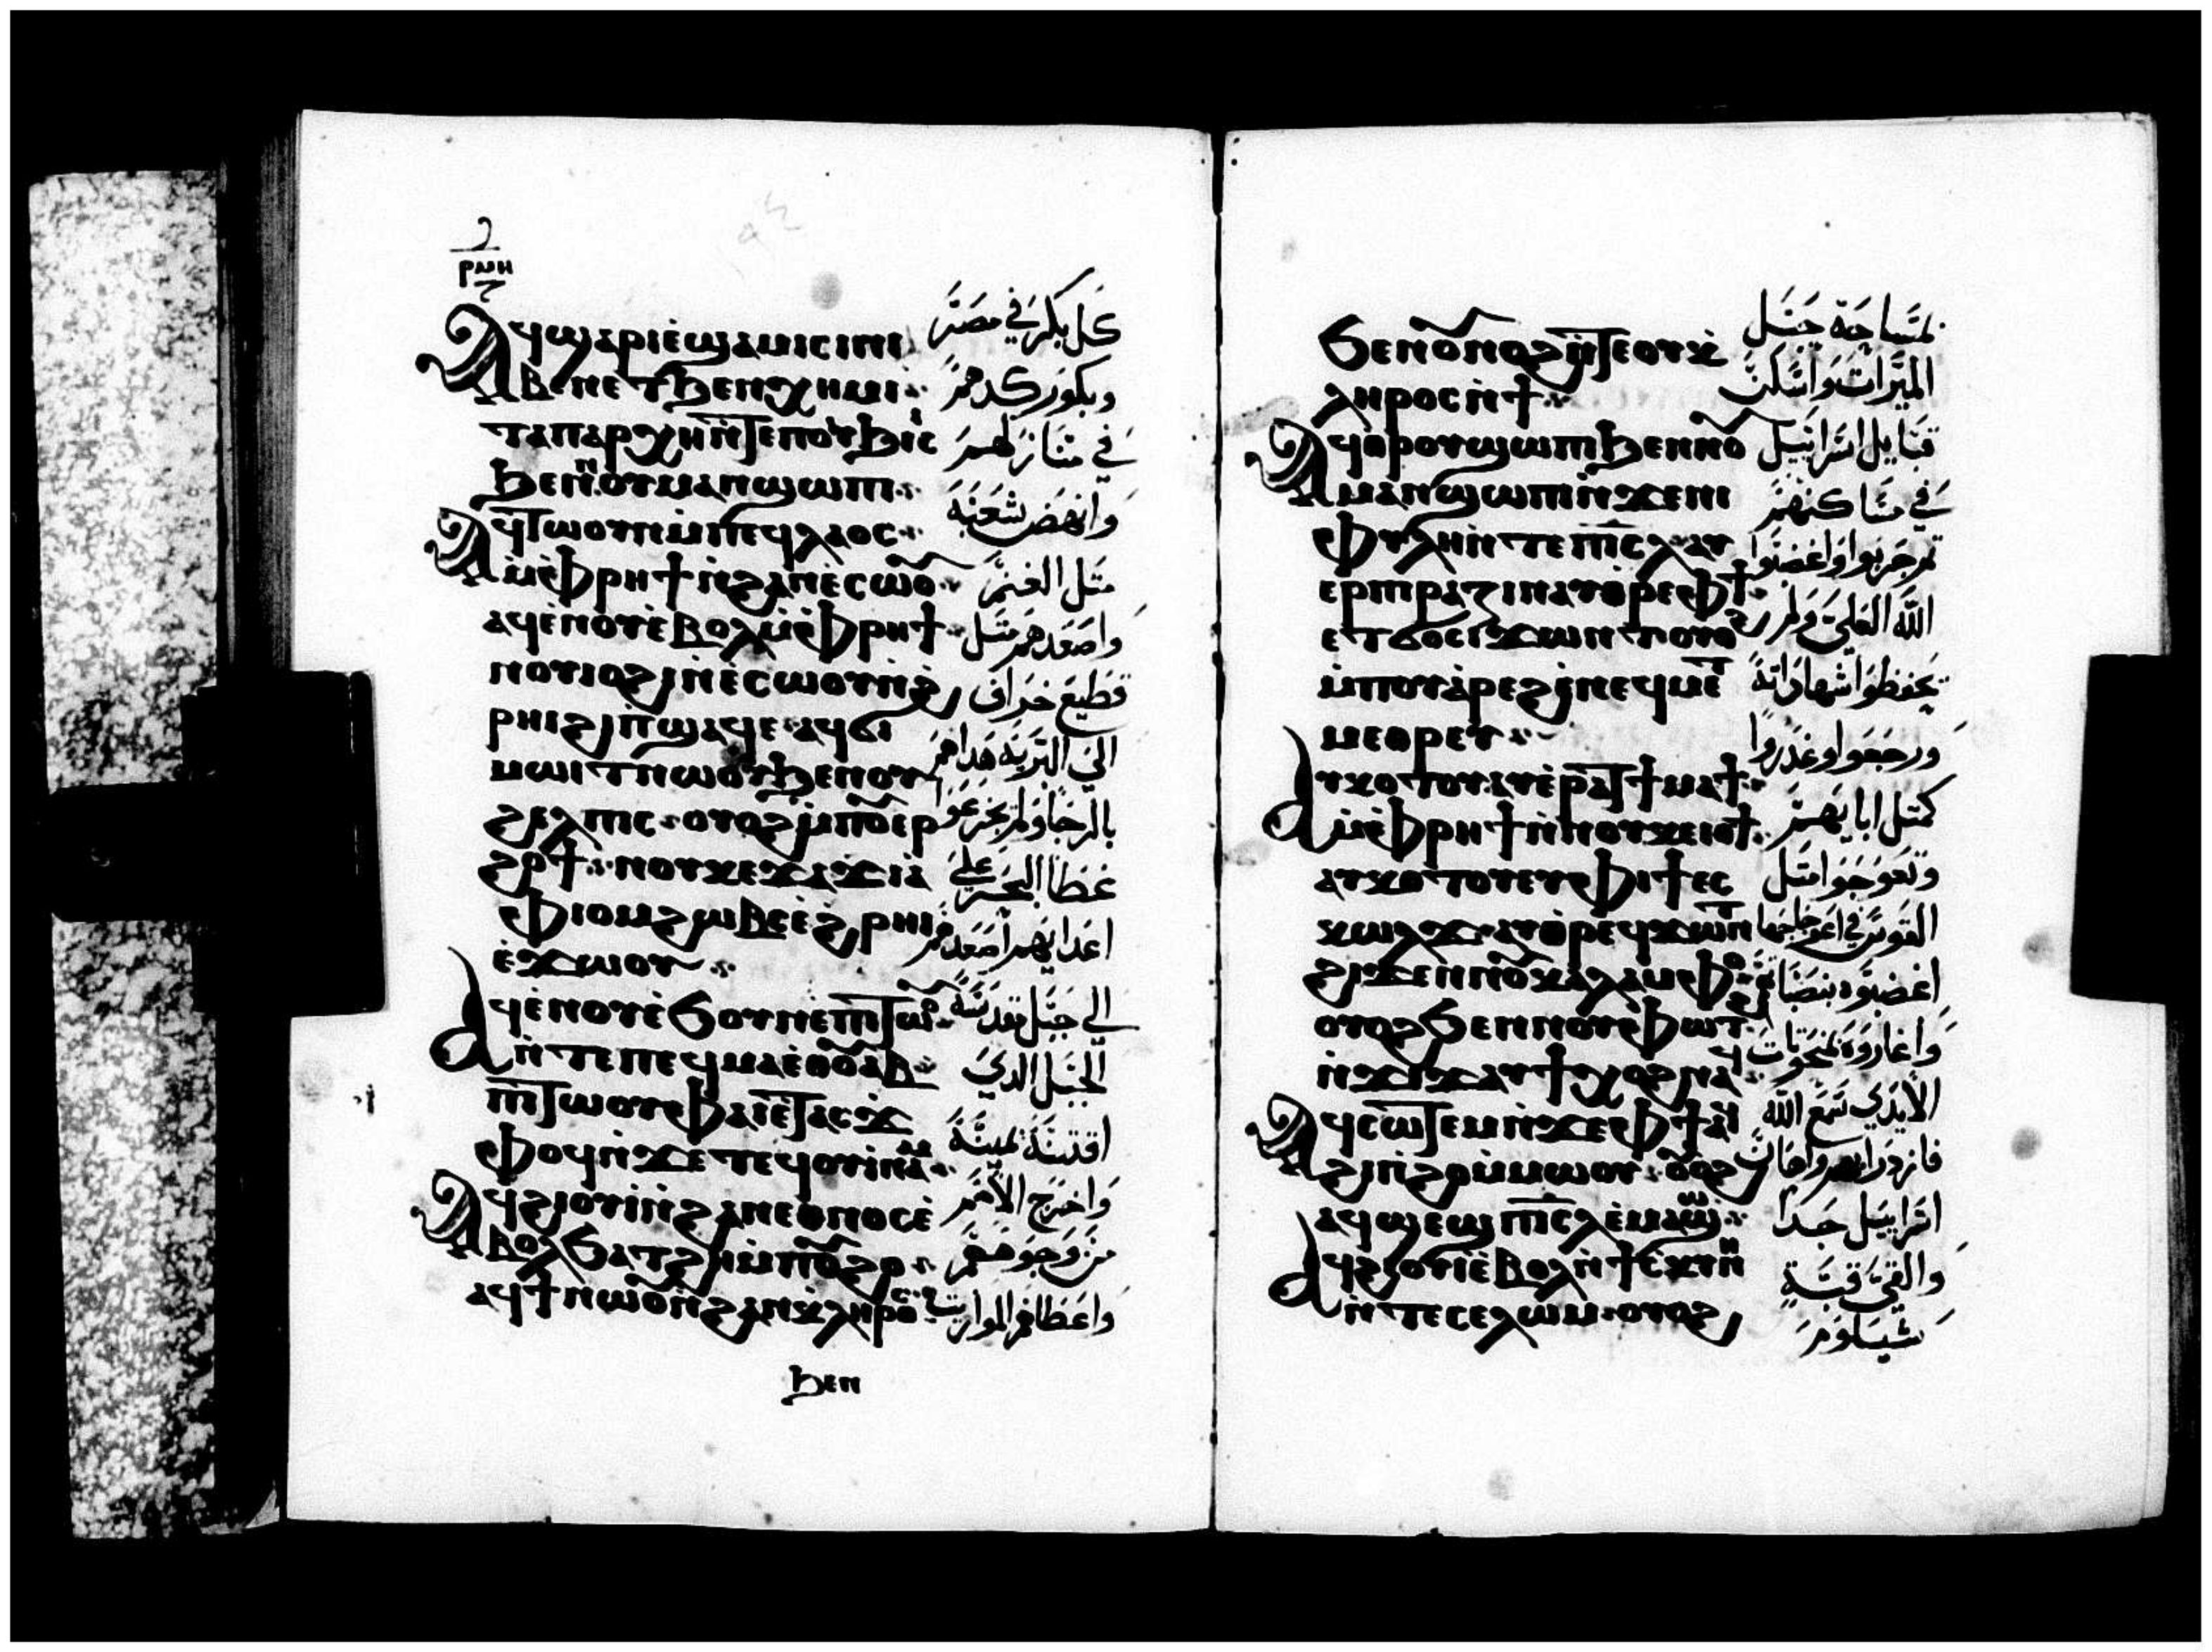 ⲣⲙⲏ
ⲁϥϣⲁⲣⲓ ⲉ̀ϣⲁⲙⲓⲥⲓ ⲛⲓ
ⲃⲉⲛ ⲉⲧϧⲉⲛ ⲭⲏⲙⲓ
ⲧⲁⲡⲁⲣⲭⲏ ⲛ̀ⲧⲉ ⲡⲟⲩϧⲓⲥⲓ
ϧⲉⲛ ⲛⲟⲩⲙⲁⲛϣⲱⲡⲓ
ⲁϥⲧⲱⲟⲩⲛ ⲙ̀ⲡⲉϥⲗⲁⲟⲥ
ⲙ̀ⲫⲣⲏϯ ⲛ̀ϩⲁⲛⲉ̀ⲥⲱⲟⲩ
ⲁϥⲉ̀ⲛⲟⲩ ⲉ̀ⲃⲟⲗ ⲙ̀ⲫⲣⲏϯ
ⲛⲟⲩⲓⲟϩⲓ ⲛ̀ⲉ̀ⲥⲱⲟⲩ ⲛ̀ϩ
ⲣⲏⲓ ϩⲓ ⲡ̀ϣⲁϥⲉ ⲁϥϭⲓ
ⲙⲱⲓⲧ ⲛⲱⲟⲩ ϧⲉⲛ ⲟⲩ
ϩⲉⲗⲡⲓⲥ ⲟⲩⲟϩ ⲙ̀ⲡⲟⲩⲉⲣ
ϩⲟϯ ⲛⲟⲩⲕⲉϫⲁϫⲓ ⲁ̀
ⲫⲓⲟⲙ ϩⲱⲃⲥ ⲉ̀ϩⲣⲏⲓ
ⲉ̀ϫⲱⲟⲩ
ⲁϥⲉ̀ⲛⲟⲩ ⲉ̀ϧⲟⲩⲛ ⲉ̀ⲡⲧⲱⲟⲩ
ⲛ̀ⲧⲉ ⲡⲉϥⲙⲁ ⲉⲑⲟⲩⲁⲃ
ⲡⲧⲱⲟⲩ ⲫⲁⲓ ⲉ̀ⲧⲁⲥϫ
ⲫⲟϥ ⲛ̀ϫⲉ ⲧⲉϥⲟⲩⲓⲛⲁⲙ
ⲁϥϩⲓⲟⲩⲓ ⲛ̀ϩⲁⲛⲉⲑⲛⲟⲥ ⲉ̀
ⲃⲟⲗ ϧⲁⲧϩⲏ ⲙ̀ⲡⲟⲩϩⲟ
ⲁϥϯ ⲛⲱⲟⲩ ⲛ̀ϩⲁⲛⲕⲗⲏⲣⲟⲥ
ϧⲉⲛ
كل بكر في مصر
وبكور كدهم
في منازلهم
وانهض شعبه
مثل الغنم
واصعدهم مثل
قطيع خراف
الي البرية هداهم
بالرجا ولم يجزعوا
غطا البحر علي
اعدايهم اصعدهم
الي جبل قدسه
الجبل الدي
اقتنته يمينه
واخرج الامم
من وجوههم
واعطاهم المواريت
ϧⲉⲛ ⲟⲩⲛⲟϩ ⲛ̀ⲧⲉ ⲟⲩⲕ
ⲗⲏⲣⲟⲥ ⲛ̀ϯ
ⲁϥⲑⲣⲟⲩϣⲱⲡⲓ ϧⲉⲛ ⲛⲟⲩ
ⲙⲁⲛϣⲱⲡⲓ ⲛ̀ϫⲉ ⲛⲓ
ⲫⲩⲗⲏ ⲛ̀ⲧⲉ ⲡⲓⲥⲗ ⲁⲩ
ⲉⲣⲡⲓⲣⲁⲍⲓⲛ ⲁⲩⲑⲣⲉ ⲫϯ
ⲉⲧϭⲟⲥⲓ ϫⲱⲛⲧ ⲟⲩⲟϩ
ⲙ̀ⲡⲟⲩⲁ̀ⲣⲉϩ ⲉ̀ⲛⲉϥⲙⲉⲧ
ⲙⲉⲑⲣⲉⲩ
ⲁⲩⲕⲟⲧⲟⲩ ⲁⲩⲉ̀ⲣⲁⲧϯⲙⲁϯ
ⲙ̀ⲫⲣⲏϯ ⲛ̀ⲛⲟⲩⲕⲉⲓⲟϯ
ⲁⲩⲕⲟⲧⲟⲩ ⲉⲩⲫⲓϯ ⲉⲥ
ⲕⲱⲗϫ ⲁⲩⲑⲣⲉϥϫⲱⲛⲧ
ϩⲓϫⲉⲛ ⲛⲟⲩⲕⲁⲗⲁⲙⲫⲟ
ⲟⲩⲟϩ ϧⲉⲛ ⲛⲟⲩⲫⲱⲧϩ
ⲛ̀ϫⲓϫ ⲁⲩϯⲭⲟϩ ⲛⲁϥ
ⲁϥⲥⲱⲧⲉⲙ ⲛ̀ϫⲉ ⲫϯ ⲁϥ
ϩⲓⲡϩⲟ ⲙ̀ⲙⲱⲟⲩ ⲟⲩⲟϩ
ⲁϥϣⲉϣ ⲡⲓⲥⲗ ⲉ̀ⲙⲁϣⲱ
ⲁϥϩⲓⲟⲩⲓ ⲉ̀ⲃⲟⲗ ⲛ̀ϯⲥⲕⲏⲛⲏ
ⲛ̀ⲧⲉ ⲥⲉⲗⲱⲙ ⲟⲩⲟϩ
لمساحة حبل
الميرات واسكن
قبايل اسراييل
في مساكنهم
تم جربوا واغضبوا
الله العلي ولم
يحفظوا شهاداته
ورجعوا وغدروا
كمتل ابايهم
وتعوجوا متل
القوس في اعوجاجها
اغضبوه
واغاروه بمنحوتات
الايدي سمع الله
فازدراهم واهان
اسراييل جدا
والقي قبة
شيلوم